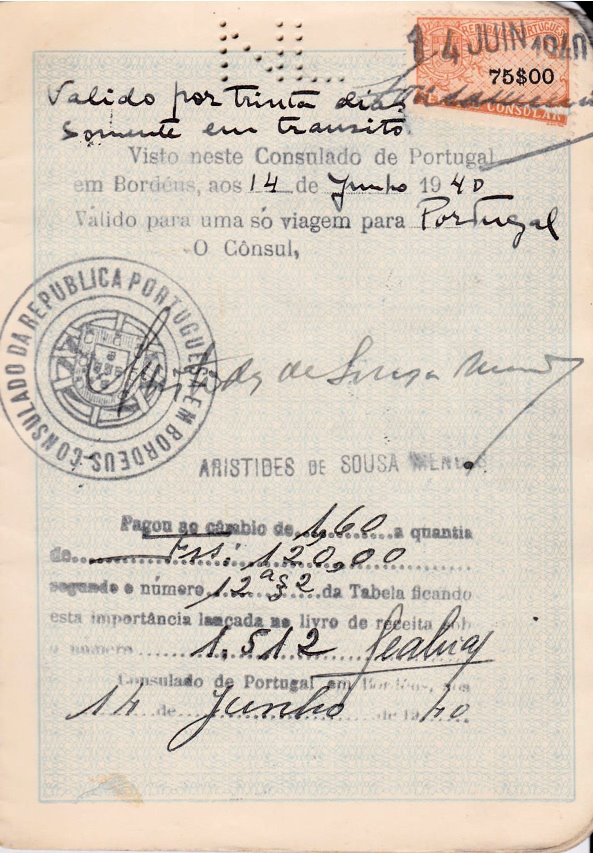 14 JUIN 1940
REPUBLICA PORTUGUESA
75$00
CONSULAR
Valido por trinta dias
somente em transito.
Visto neste Consulado de Portugal
em Bordéus, aos 14 de Junho 1940
Válido para uma só viagem para Portugal
O Cônsul,
CONSULADO DA REPUBLICA PORTUGUESA EM BORDEUS
Aristides de Sousa Mendes
ARISTIDES DE SOUSA MENDES
Pagou ao câmbio de 1,60 a quantia
de Frs: 120,00
segundo o número 12 da Tabela ficando
esta importância lançada no livro de receita sob
o número 1.512
Consulado de Portugal em Bordéus, aos
14 de Junho de 1940